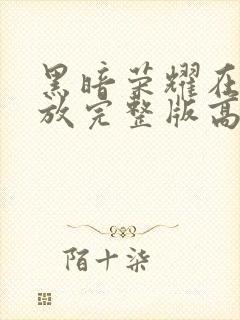 黑暗荣耀在
放完整版高
陌十柒